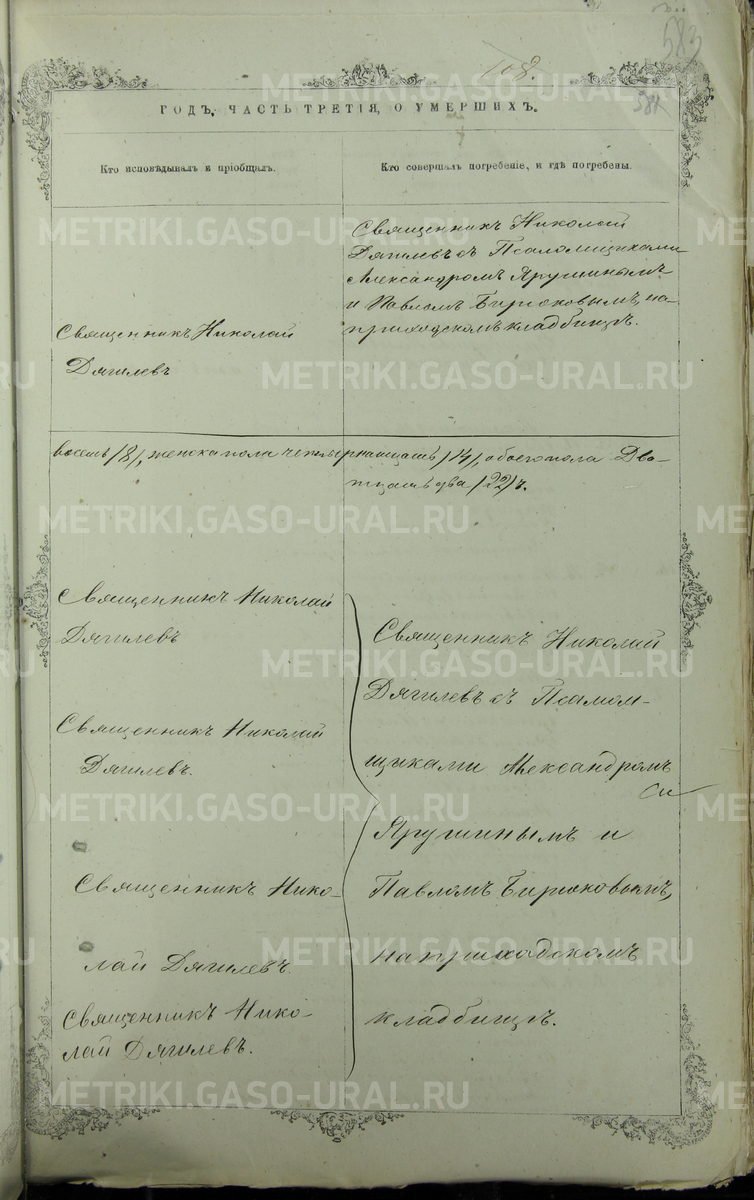 108.
583
584
ГОДЪ, ЧАСТЬ ТРЕТІЯ, О УМЕРШИХЪ.
Кто исповѣдывалъ и пріобщалъ.
Кто совершалъ погребеніе, и гдѣ погребены.
Священникъ Николай
Дягилевъ
Священникъ Николай
Дягилевъ съ Псаломщиками
Александромъ Ярушинымъ
и Павломъ Бирюковымъ, на
приходскомъ кладбищѣ.
восемь /8/, женска пола четырнатцать /14/, обоего пола Два-
тцать два /22/ ч.
Священникъ Николай
Дягилевъ
Священникъ Николай
Дягилевъ.
Священникъ Нико-
лай Дягилевъ.
Священникъ Нико-
лай Дягилевъ.
Священникъ Николай
Дягилевъ съ Псалом-
щиками Александромъ
Ярушинымъ и
Павломъ Бирюковымъ,
на приходскомъ
кладбищѣ.
METRIKI.GASO-URAL.RU